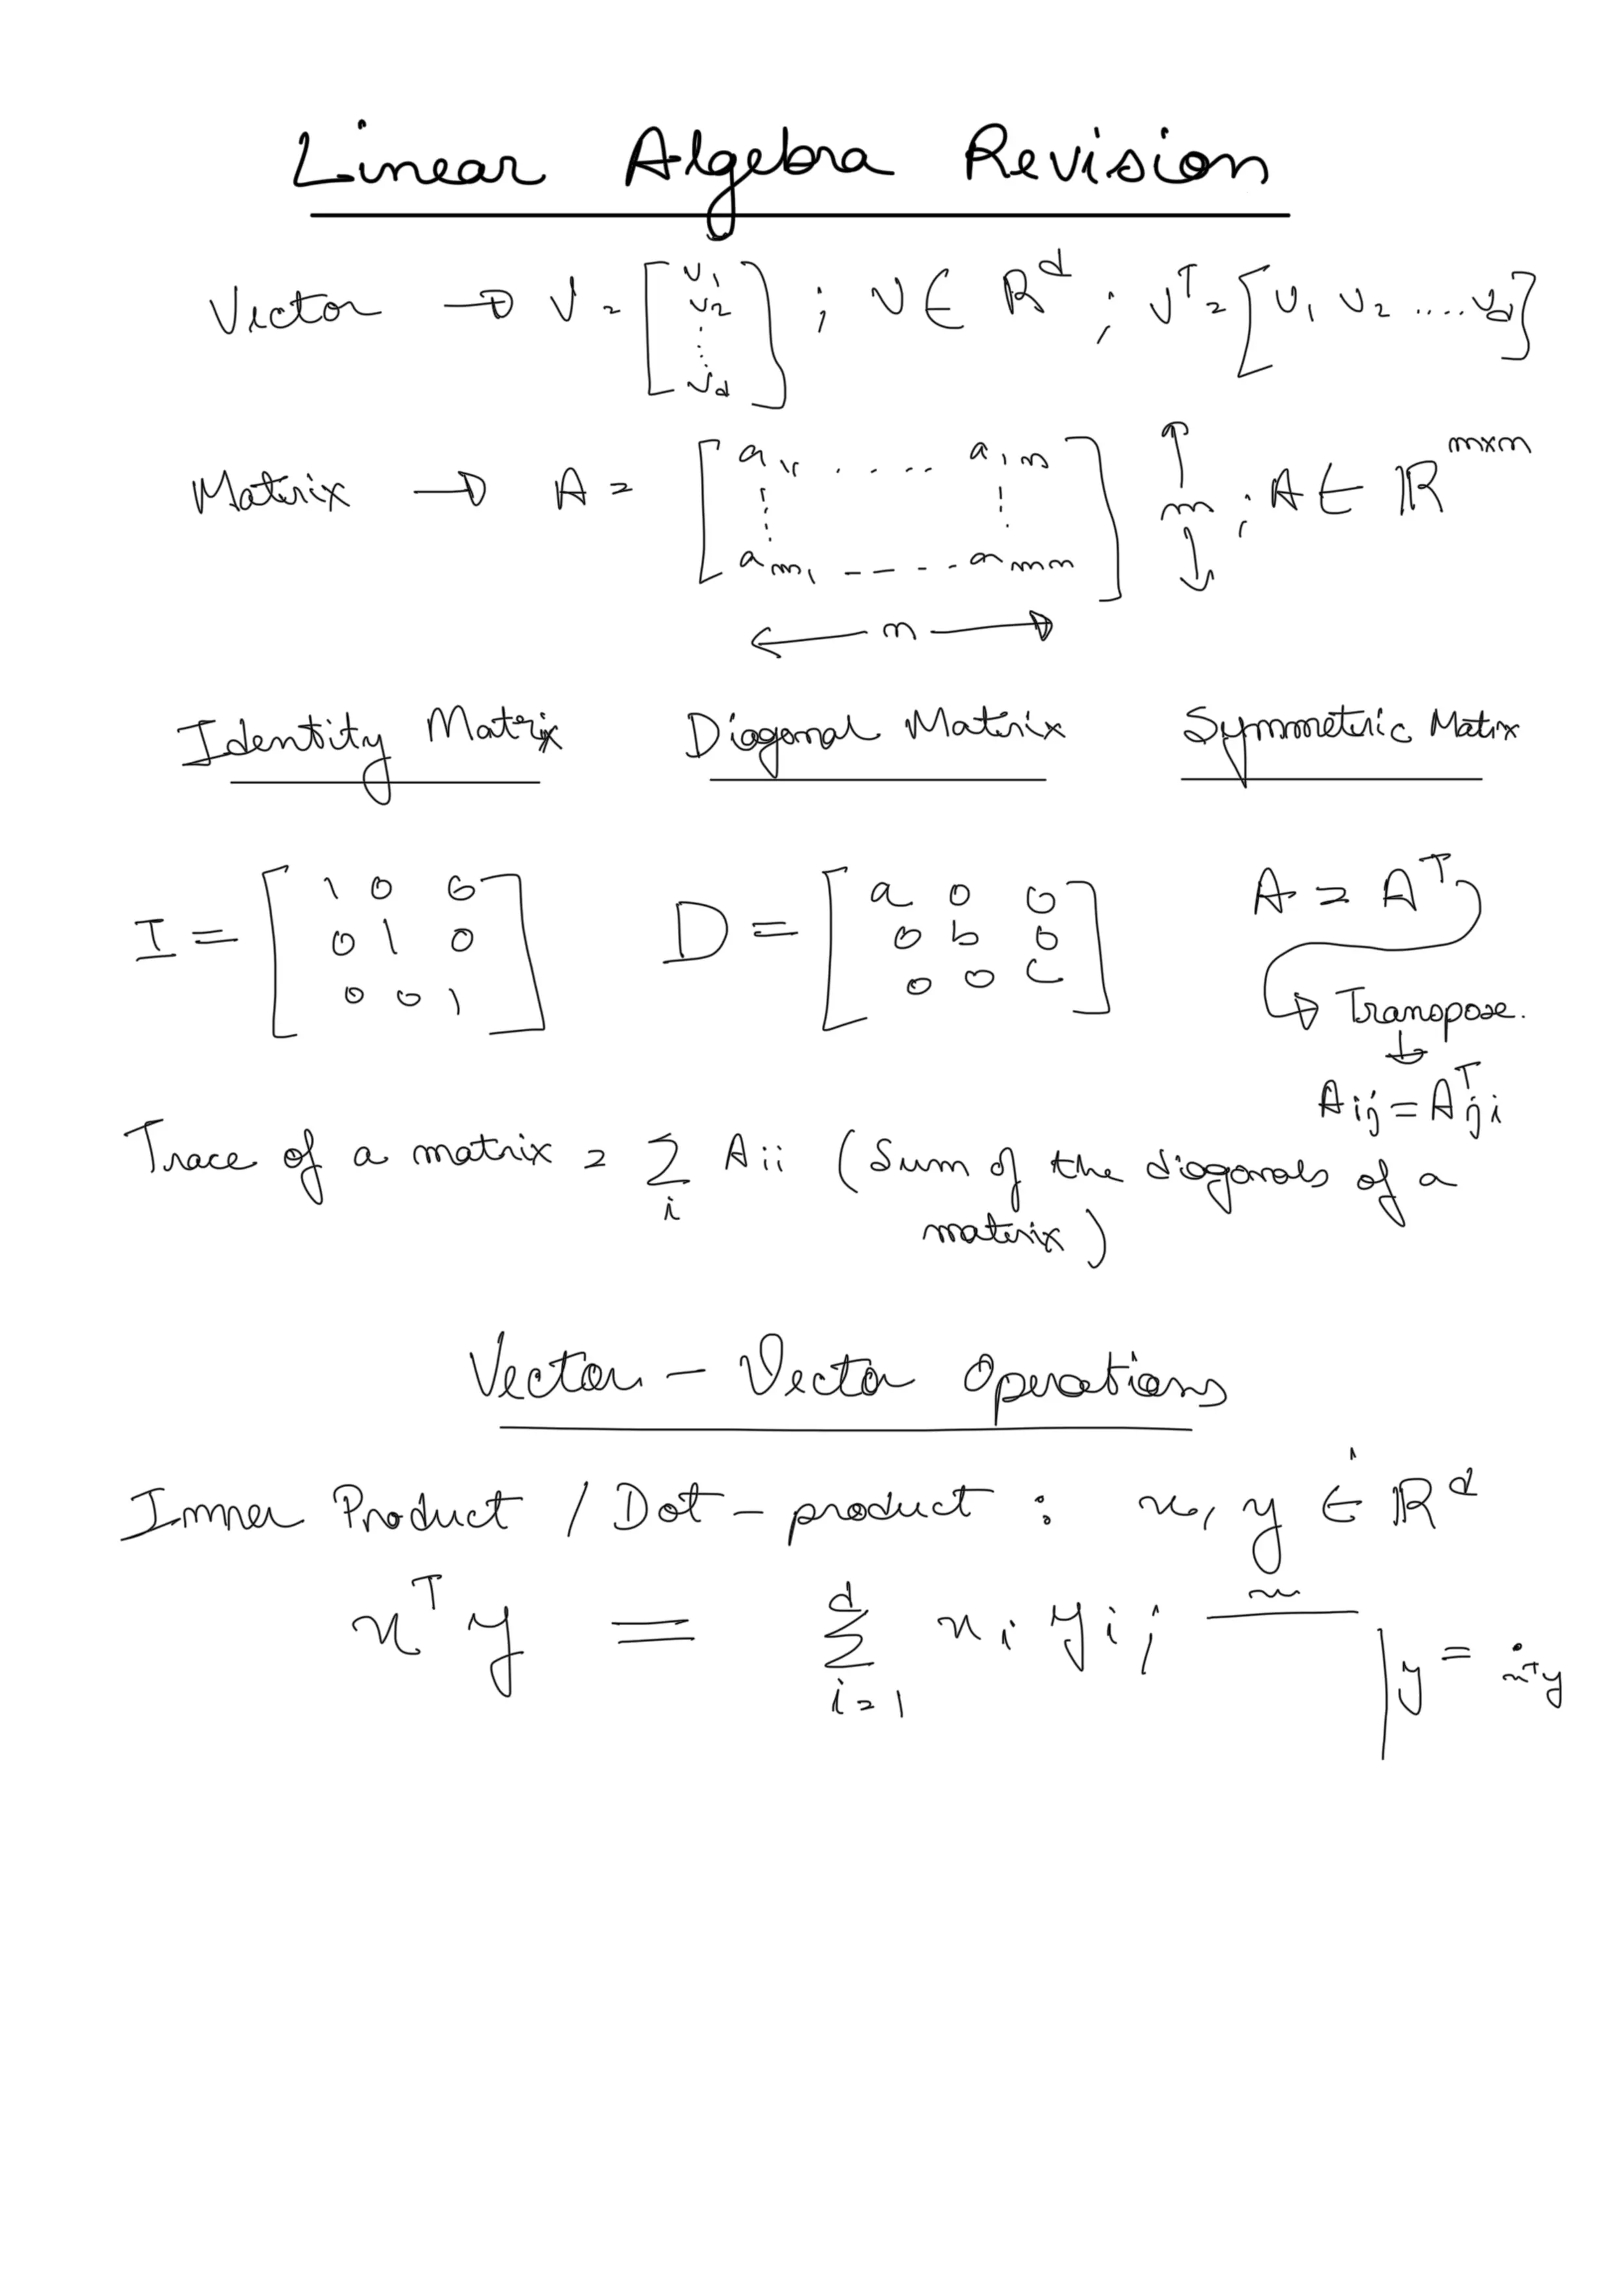 Linear Algebra Revision
Vector → v = [v₁ v₂ ⋮ v_d] ; v ∈ ℝ^d ; v^T = [v₁ v₂ ..... v_d]
Matrix → A = [a₁₁ ..... a₁n
⋮ ⋮
a_m₁ ----- a_mn] ↑ m ↓ ; A ∈ ℝ^{m×n}
← n →
Identity Matrix Diagonal Matrix Symmetric Matrix
I = [1 0 0
0 1 0
0 0 1]
D = [a 0 0
0 b 0
0 0 c]
A = A^T
→ Transpose.
↓
A_ij = A^T_ji
Trace of a matrix = Σ_i A_ii (Sum of the diagonals of a
matrix)
Vector - Vector Operations
Inner Product / Dot-product : x, y ∈ ℝ^d
x^T y = Σ_{i=1}^{d} x_i y_i ; x | y = x^T y